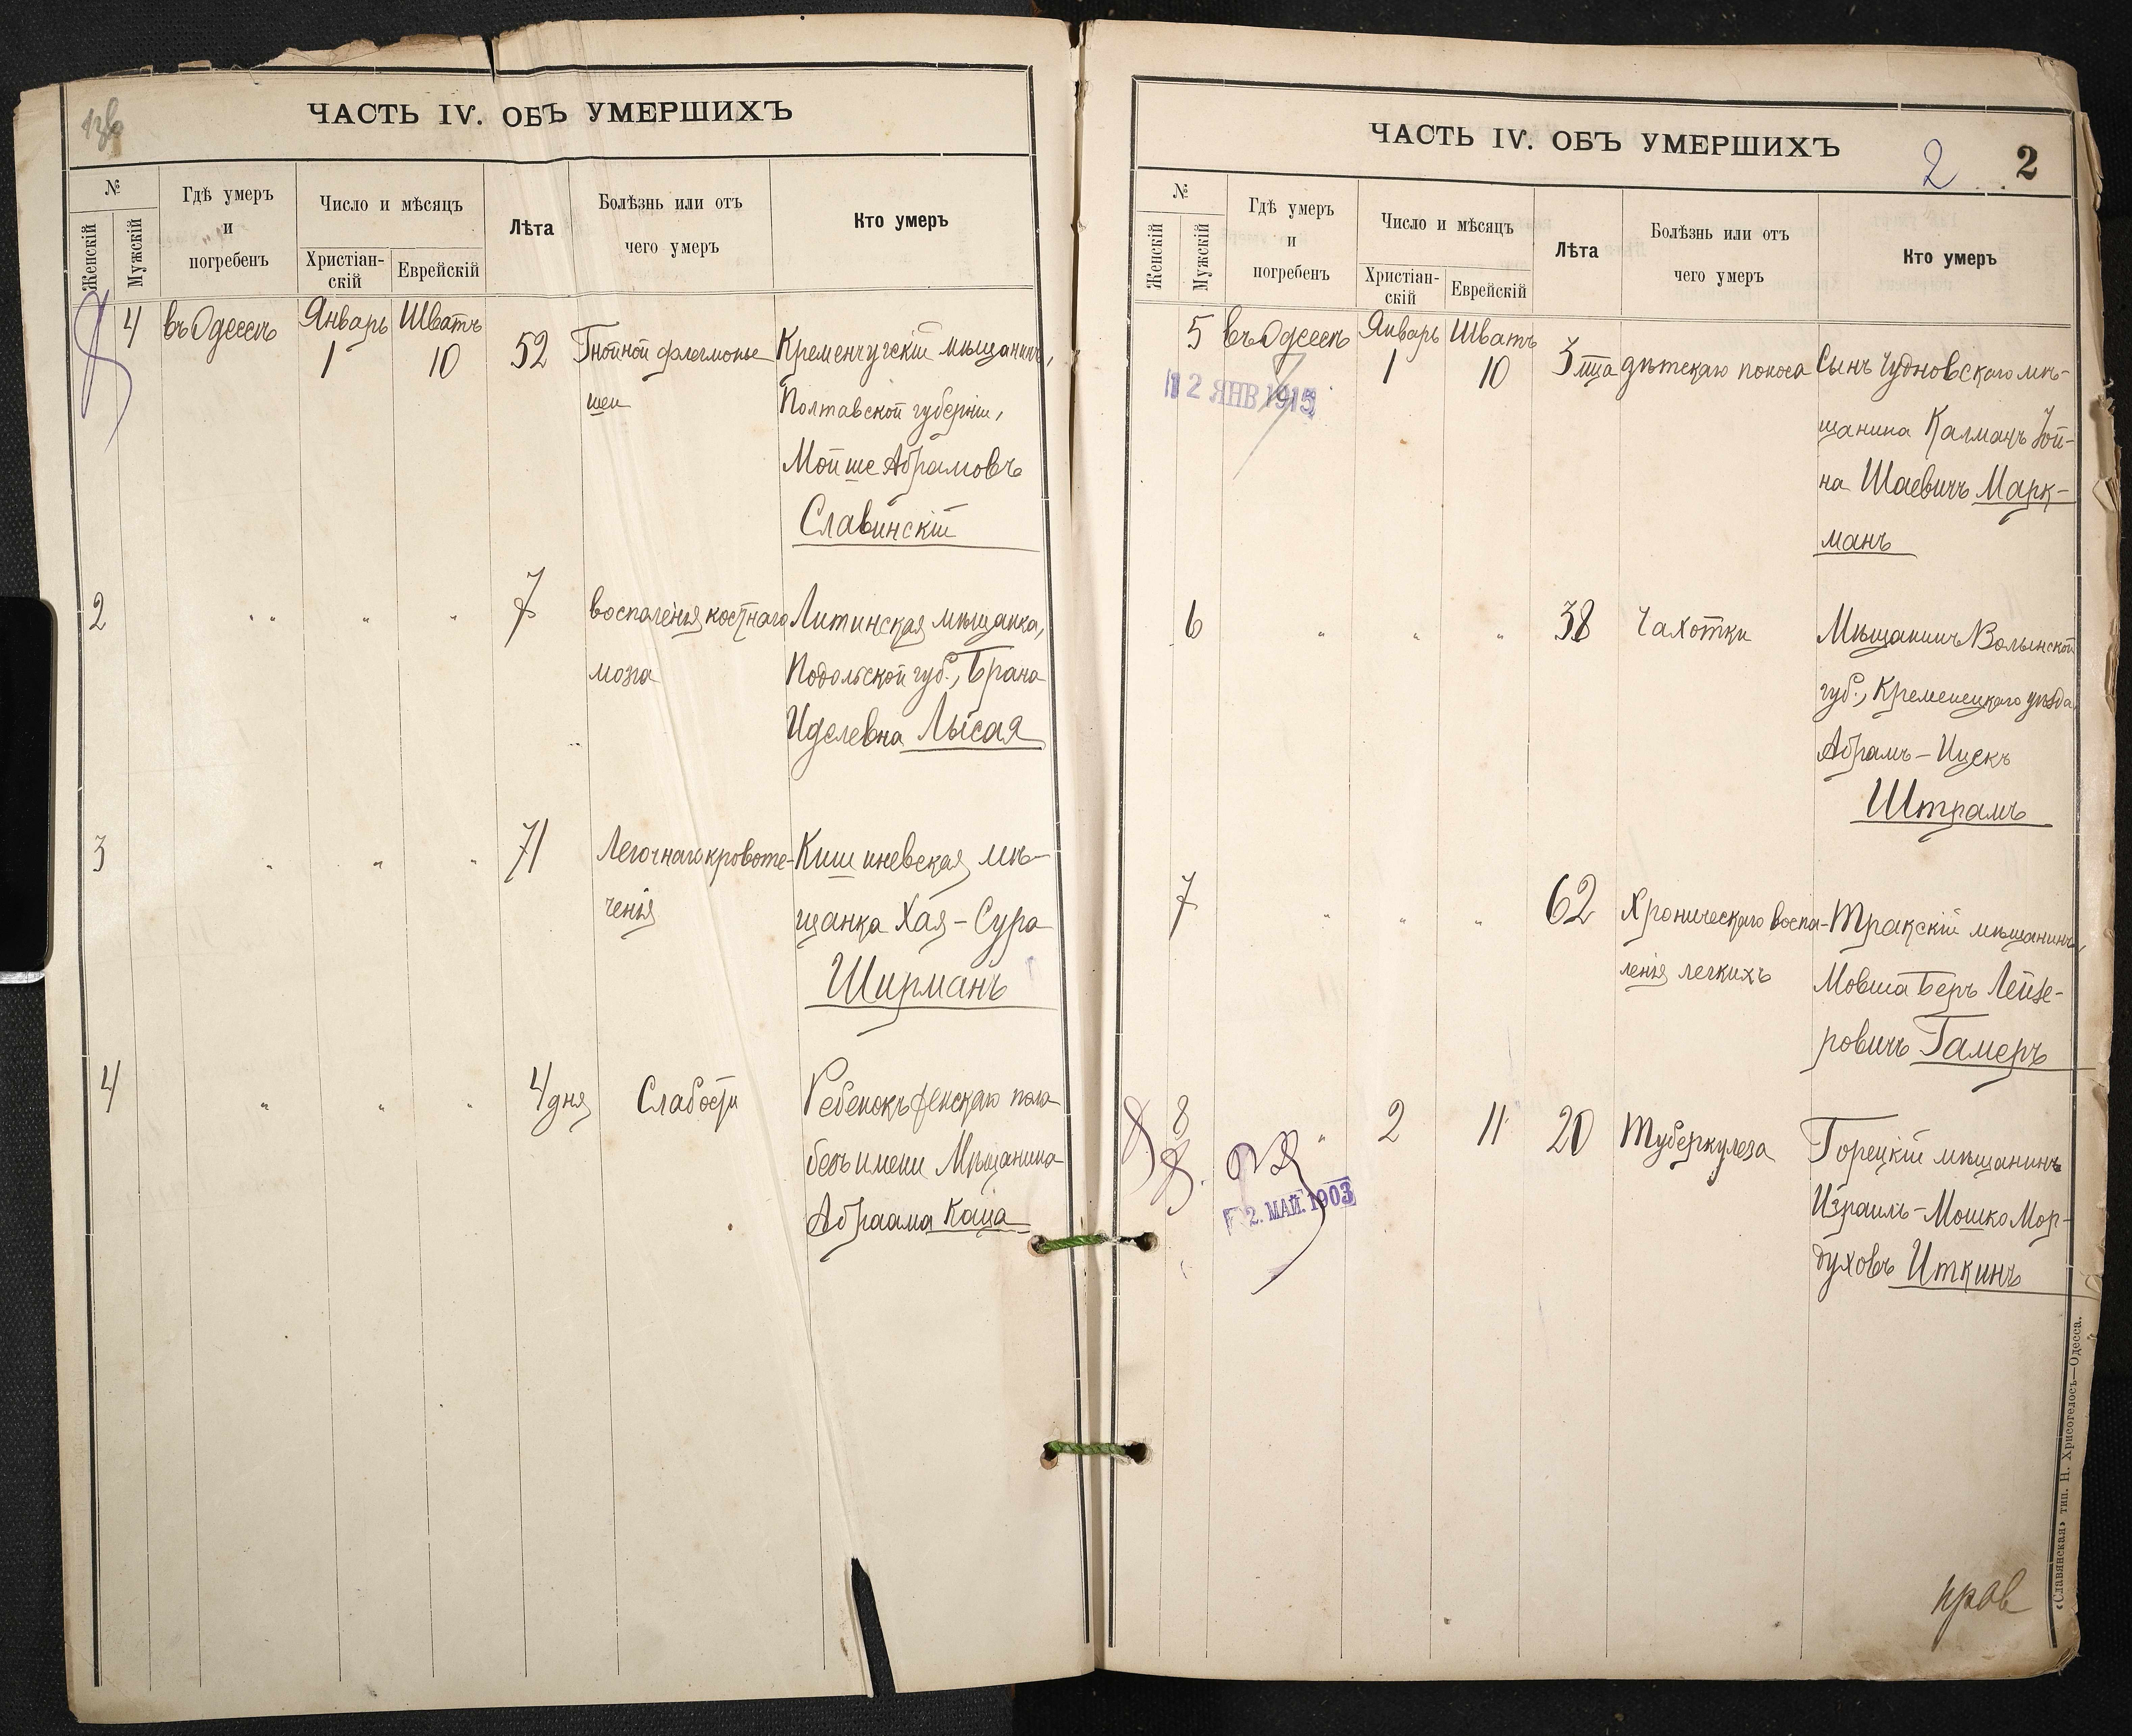 ЧАСТЬ IV. ОБЪ УМЕРШИХЪ
№
Женскій
Мужскій
Гдѣ умеръ
и
погребенъ
Число и мѣсяцъ
Христіан-
скій
Еврейскій
Лѣта
Болѣзнь или отъ
чего умеръ
Кто умеръ
4 въ Одессѣ Январь 1 Шватъ 10 52 Гнойной флегмоны Кременчугскій мѣщанинъ,
шеи Полтавской губерніи,
Мойше Абрамовъ
Славинскій
2 " " " " 7 воспаленія костнаго Литинская мѣщанка,
мозга Подольской губ., Брана
Иделевна Лысая
3 " " " 71 Легочнаго кровоте- Кишиневская мѣ-
ченія щанка Хая-Сура
Ширманъ
4 " " " 4 дня Слабости Ребенокъ женскаго пола
безъ имени Мѣщанина
Абраама Каца
ЧАСТЬ IV. ОБЪ УМЕРШИХЪ
2 2
№
Женскій
Мужскій
Гдѣ умеръ
и
погребенъ
Число и мѣсяцъ
Христіан-
скій
Еврейскій
Лѣта
Болѣзнь или отъ
чего умеръ
Кто умеръ
5 въ Одессѣ Январь 1 Шватъ 10 3 м-ца дѣтскаго поноса Сынъ Чудновскаго мѣ-
12 ЯНВ 1915
щанина Калманъ Іой-
на Шаевичъ Марк-
манъ
6 " " " 38 Чахотки Мѣщанинъ Волынской
губ., Кременецкаго уѣзда
Абрамъ-Ицекъ
Штрамъ
7 " " " 62 Хроническаго воспа- Тракскій мѣщанинъ,
ленія легкихъ Мовша Беръ Лейзе-
ровичъ Гамеръ
8 " 2 11 20 Туберкулеза Горецкій мѣщанинъ
2. МАЙ. 1903
Израиль-Мошко Мор-
духовъ Иткинъ
«Славянская» тип. Н. Хрисогелосъ—Одесса.